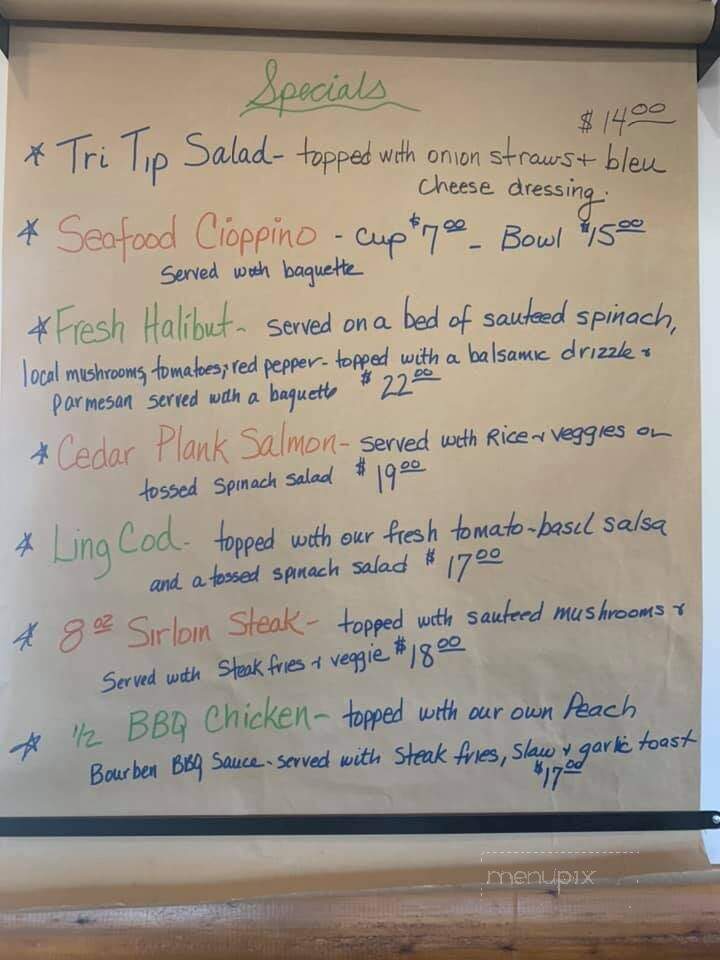 Specials
$1400
* Tri Tip Salad- topped with onion straws + bleu
cheese dressing.
* Seafood Cioppino - cup $700 - Bowl $1500
Served with baguette
* Fresh Halibut- served on a bed of sauteed spinach,
local mushrooms, tomatoes, red pepper- topped with a balsamic drizzle +
parmesan served with a baguette $2200
* Cedar Plank Salmon- served with Rice + veggies or
tossed spinach salad $1900
* Ling Cod- topped with our fresh tomato-basil salsa
and a tossed spinach salad $1700
* 8oz Sirloin Steak- topped with sauteed mushrooms +
Served with Steak fries + veggie $1800
* 1/2 BBQ Chicken- topped with our own Peach
Bourben BBQ Sauce- served with Steak fries, Slaw + garlic toast
$1700
menupix